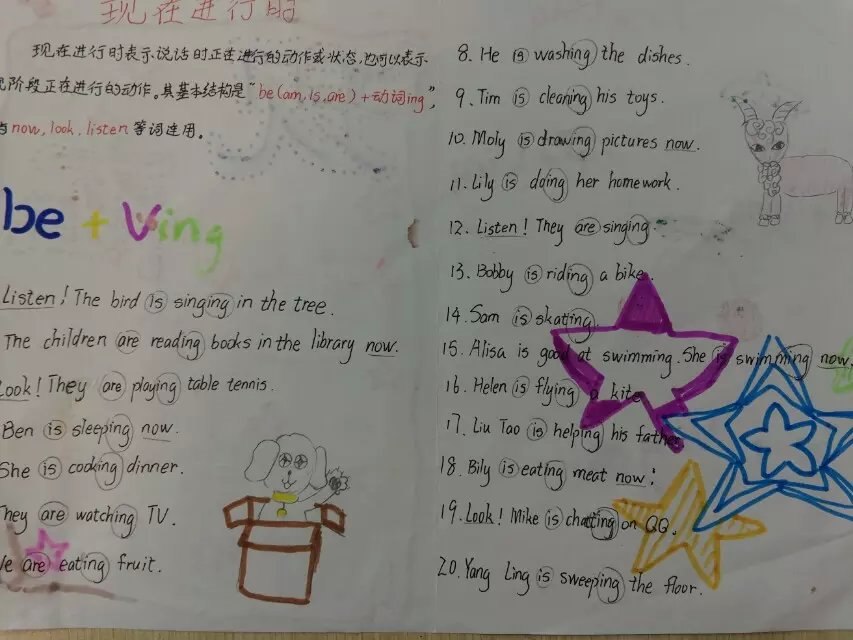 现在进行时
现在进行时表示说话时正在进行的动作或状态,也可以表示
阶段正在进行的动作。其基本结构是"be(am,is,are)+动词ing",
与now,look,listen等词连用。
be + Ving
Listen! The bird is singing in the tree.
The children are reading books in the library now.
Look! They are playing table tennis.
Ben is sleeping now.
She is cooking dinner.
They are watching TV.
We are eating fruit.
8. He is washing the dishes.
9. Tim is cleaning his toys.
10. Moly is drawing pictures now.
11. Lily is doing her homework.
12. Listen! They are singing.
13. Bobby is riding a bike.
14. Sam is skating.
15. Alisa is good at swimming. She is swimming now.
16. Helen is flying a kite
17. Liu Tao is helping his father
18. Bily is eating meat now.
19. Look! Mike is chatting on QQ.
20. Yang Ling is sweeping the floor.